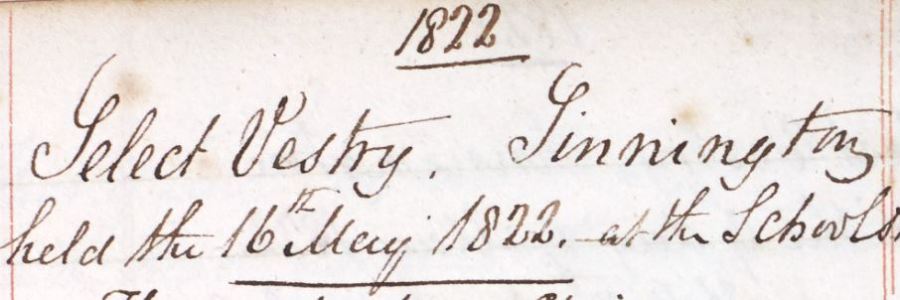 1822
Select Vestry. Sinnington
held the 16th May 1822. at the Schools